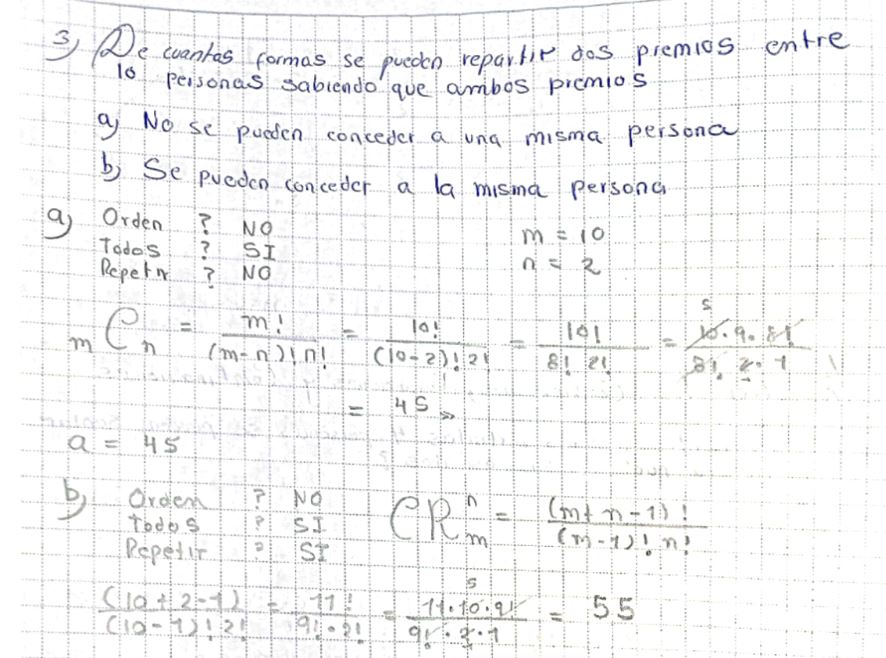 3) De cuantas formas se pueden repartir dos premios entre
10 personas sabiendo que ambos premios
a) No se pueden conceder a una misma persona
b) Se pueden conceder a la misma persona
a) Orden ? NO
Todos ? SI
Repetir ? NO
m = 10
n = 2
mCn = m! / (m-n)! n! = 10! / (10-2)! 2! = 10! / 8! 2! = 10.9.8! / 8! 2.1
5
= 45
a = 45
b) Orden ? NO
Todos ? SI
Repetir ? SI
CR n m = (m+n-1)! / (m-1)! n!
(10+2-1) / (10-1)! 2! = 11! / 9!.2! = 11.10.9! / 9!.2.1 = 55
5